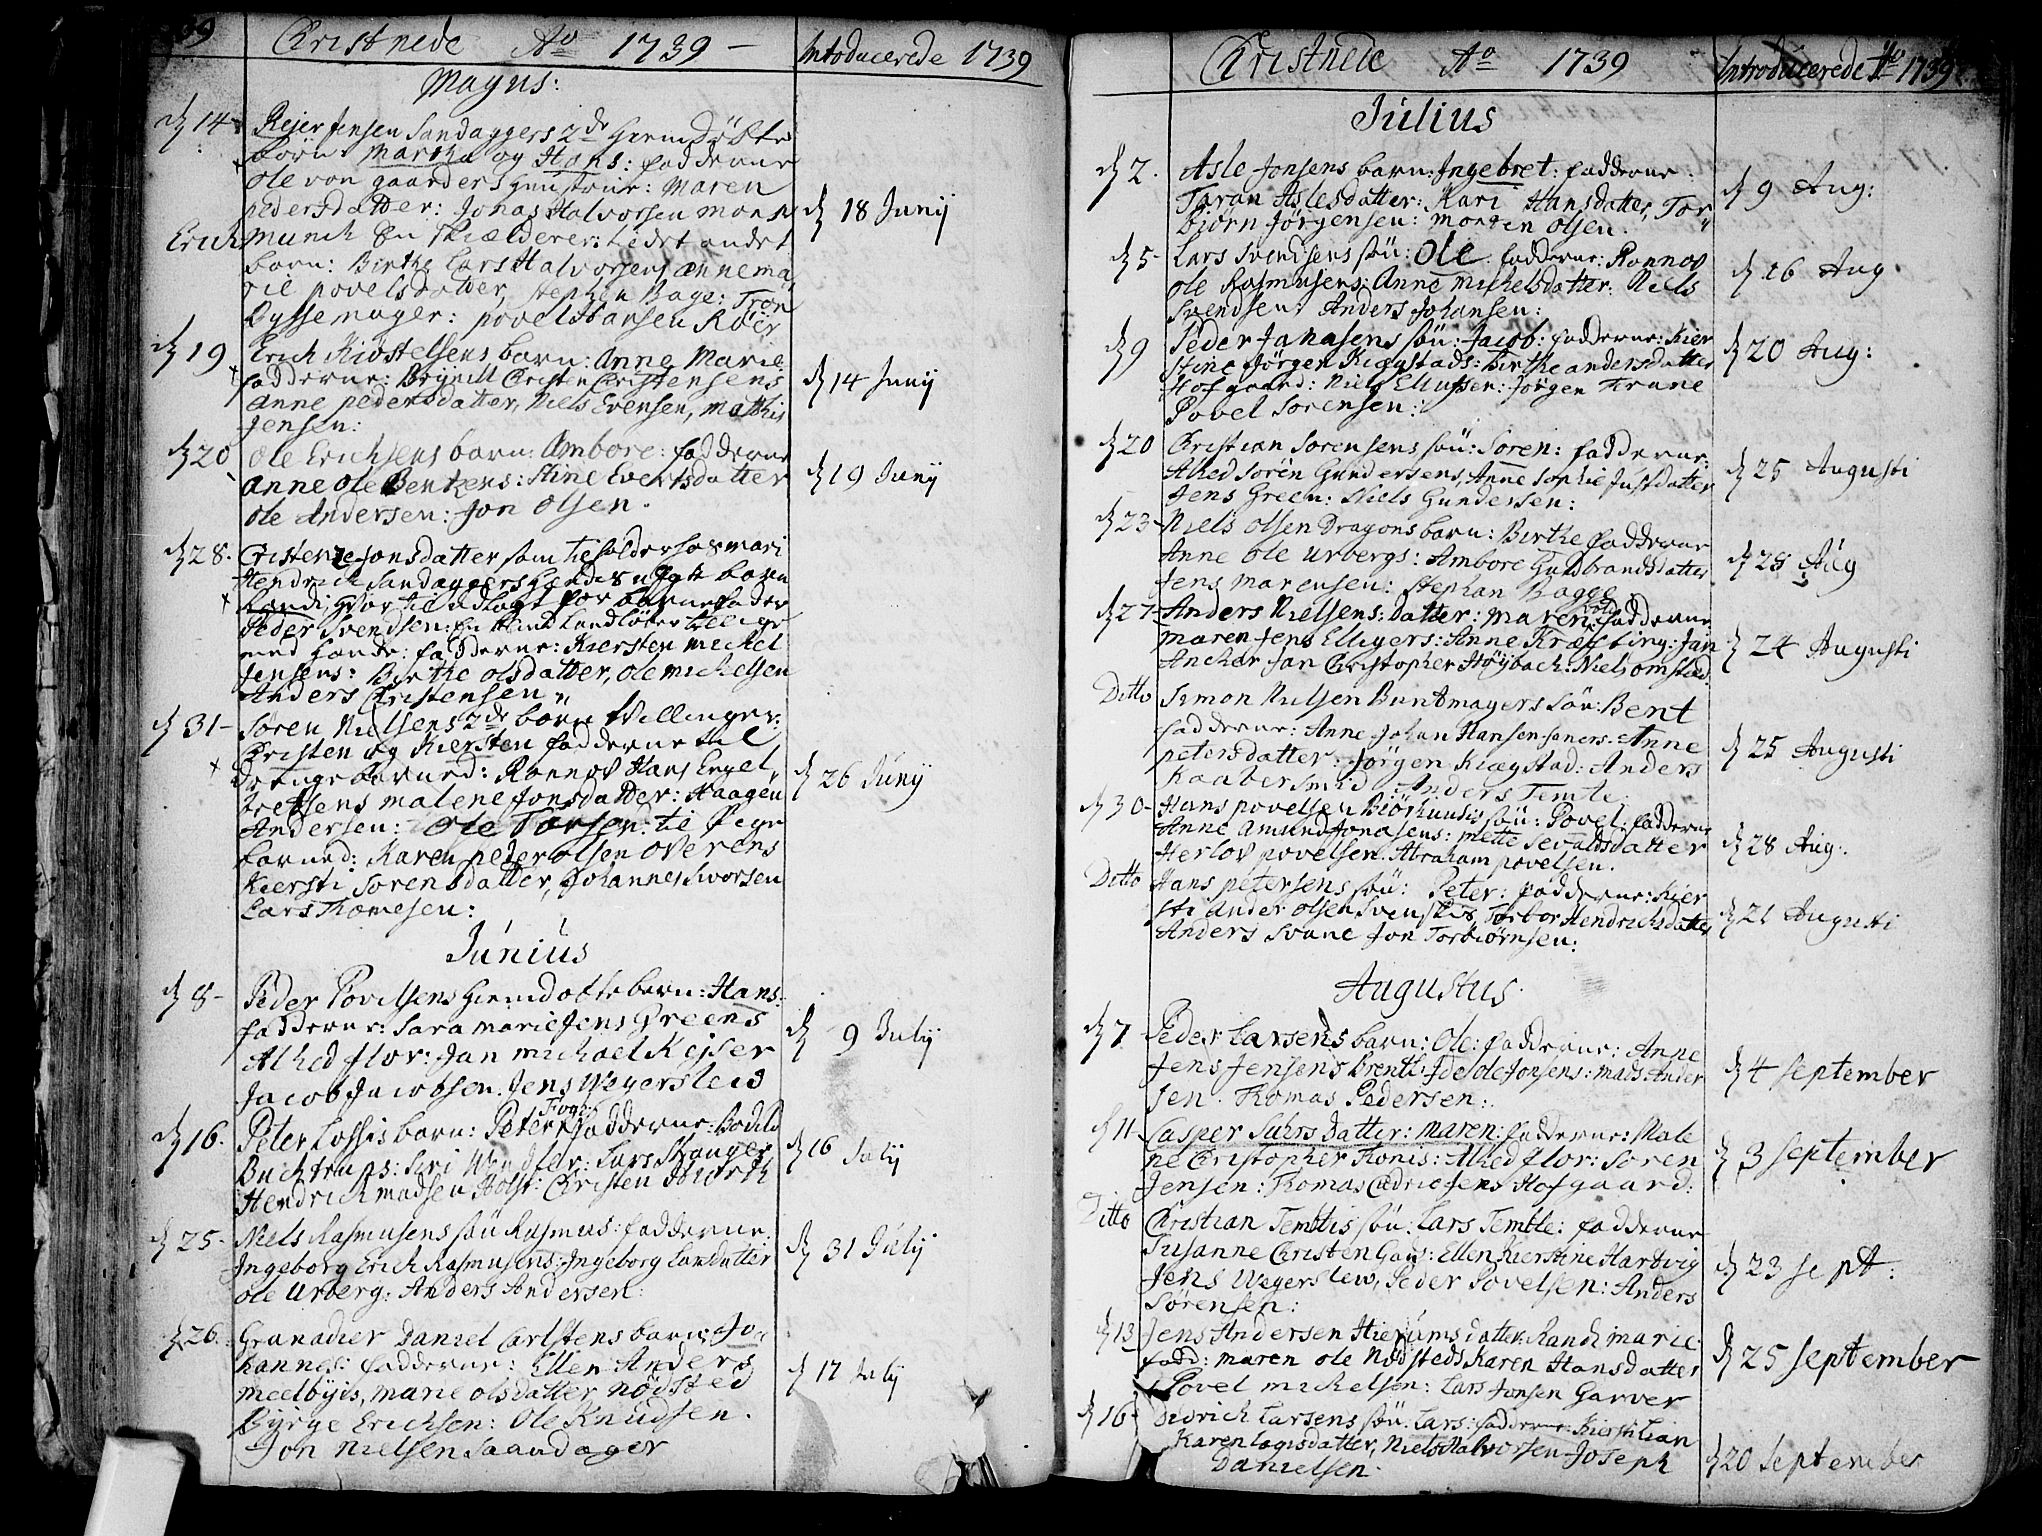 Christnede Ao 1739 –
Introducerede 1739
Majus:
d 14
Reier Jensen Sandaggers 2de hiemdøbte
børn Martha og Hans: fadderne
Ole von gaarders huustrue: Maren
pedersdatter: Jonas Halvorsen
d 18 Junij
Erich Munch En til det andet
barn: Birthe Lars Halvorsens anne ma
rie povelsdatter, Stephen Bage: Tron
Dyssemager: povel Hansen Røer
d 19
Erich Kiøstelsens barn: Anne Marie
fadderne: Christen Christensens
anne pedersdatter, Niels Evensen, Mathis
Jensen:
d 14 Junij
d 20
Ole Erichsens barn: Ambore: fadderne
anne ole Benthens: Stine Evertsdatter
ole Andersen: Jon Olsen.
d 19 Junij
d 28.
Cristense Jonsdatter som tilholder hos mari
Hendrich Sandaggers barn
Randi, hvor til udlagt for barnefader
Peder Svendsen: En Landløber
med hænde: fadderne: Kiersten Mickel
Jensens: Birthe olsdatter, ole Mickelsen
Anders Christensen
d 31 –
Søren Nielsens 2de børn tvillinger:
Christen og Kiersten fadderne til
Drenge barned: Ronnov Hans Engel,
bretsens malene Jonsdatter: Haagen
Andersen: Ole Torsen: til Pige
barned: Karen peter olsen overens
Kiersti Sørensdatter, Johannes Iversen
Lars Thomesen:
d 26 Junij
Junius
d 8 –
Peder Povelsens hiemdøbte barn: Hans:
fadderne: Sara marie Jens Greens
Alhed flor: Jan michael Kejser
Jacob Jacobsen. Jens Wegersleu
d 9 Julij
d 16.
Peter Lossis barn: Peter Fogh fadderne: Bodild
Buchtrups: Siri: Lars Stanger
Hendrich madsen Holst: Christen Hiorth
d 16 Julij
d 25 –
Niels Rasmusens søn Rasmus: fadderne
Ingeborg Erich Rasmusens: Ingeborg Larsdatter
ole Urberg: Anders Andersen:
d 31 Julij
d 26.
Granadier Daniel Carlstens barn: Jo
hannes: fadderne: Ellen Anders
meelbyes, marie olsdatter, nødsted
Byrge Erichsen: Ole Knudsen.
Jon Nielsen Saandager
d 17 Julij
Christnede Ao 1739
Introducerede Ao 1739
Julius
d 2.
Asle Jonsens barn: Ingebret: fadderne:
Taran Aslesdatter: Kari Hansdatter, Tor
biørn Jørgensen: morten olsen.
d 9 Aug:
d 5 –
Lars Svendsens søn: Ole. fadderne: Ronnov
ole Rasmusens: Anne mickelsdatter: Niels
Svendsen: Anders Johansen:
d 16 Aug
d 9
Peder Janasens søn: Jacob: fadderne: Kier
stine Jørgen Kiegstads: Birthe andersdatter
Hofgaard: Niels Ellufsen: Jørgen Trane
Povel Sørensen:
d 20 Aug:
d 20
Christian Sørensens søn: Søren: fadderne:
Alhed Sørén Gundersens, Anne Sophie Justdatter
Jens Green: Niels Gundersen:
d 25 Augusti
d 23 –
Niels olsen Dragons barn: Birthe fadderne
Anne ole Urbergs: Ambore Guldbrandsdatter
Jens marensen: Stephan Bagge
d 25 Aug
d 27 –
Anders Nielsens: datter: Maren fadderne
maren Jens Elligers: Anne Kræftting: Jan
Ancher Jan Christopher Høybach: Niels omsted
d 24 Augusti
Ditto
Simon Nielsen Buntmagers søn: Bent
fadderne: Anne Johan Hansen Anne
petersdatter: Jørgen Kiegstad: Anders
Kaabersmid Anders Temte.
d 25 Augusti
d 30 –
Hans povelsen Biørhuuss søn: Povel: fadderne
Anne Amund Jonasens: mette Sevaldsdatter
Herlov povelsen. Abraham povelsen.
d 28 Aug:
Ditto
Hans petersens søn: Peter: fadderne: Kier
sti Ander olsen Svenskes, Torbor Hendrichsdatter
Anders Svane Jon Torbiørnsen:
d 21 Augusti
Augustus
d 7
Peder Larsens barn: Ole: fadderne: Anne
Jens Jensens Brenthe: Ide ole Jonsens: mads Ander
sen. Thomas Pedersen:
d 4 september
d 11
Casper Suhrs datter: maren: fadderne: Male
ne Christopher Thonis: Alhed flor: Søren
Jensen: Thomas Cudrio Jens Hofgaard:
d 3 september
Ditto
Christian Temtis søn: Lars Temtle: fadderne
Susanne Christen Gads: Ellen Kierstine Hartvig
Jens Wegersleu, Peder Povelsen: Anders
Sørensen:
d 23 sept:
d 13
Jens Andersen Hierums datter: Randi marie:
fadd: maren ole Nødsteds Karen Hansdatter
Povel mickelsen: Lars Jonsen Garver
d 25 september
d 16
Didrich Larsens søn: Lars: fadderne: Kiersti Lian
Karen Lagisdatter, Niels Halvorsen Joseph
Danielsen.
d 20 september